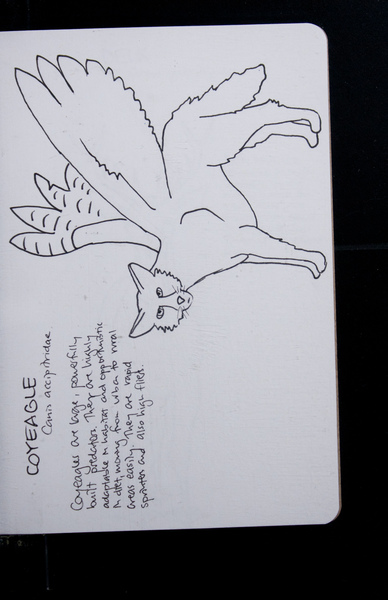 COYEAGLE
Canis accipitridae.
Coyeagles are large, powerfully
built predators. They are highly
adaptable in habitat and opportunistic
in diet, moving from urban to rural
areas easily. They are rapid
sprinters and also high fliers.